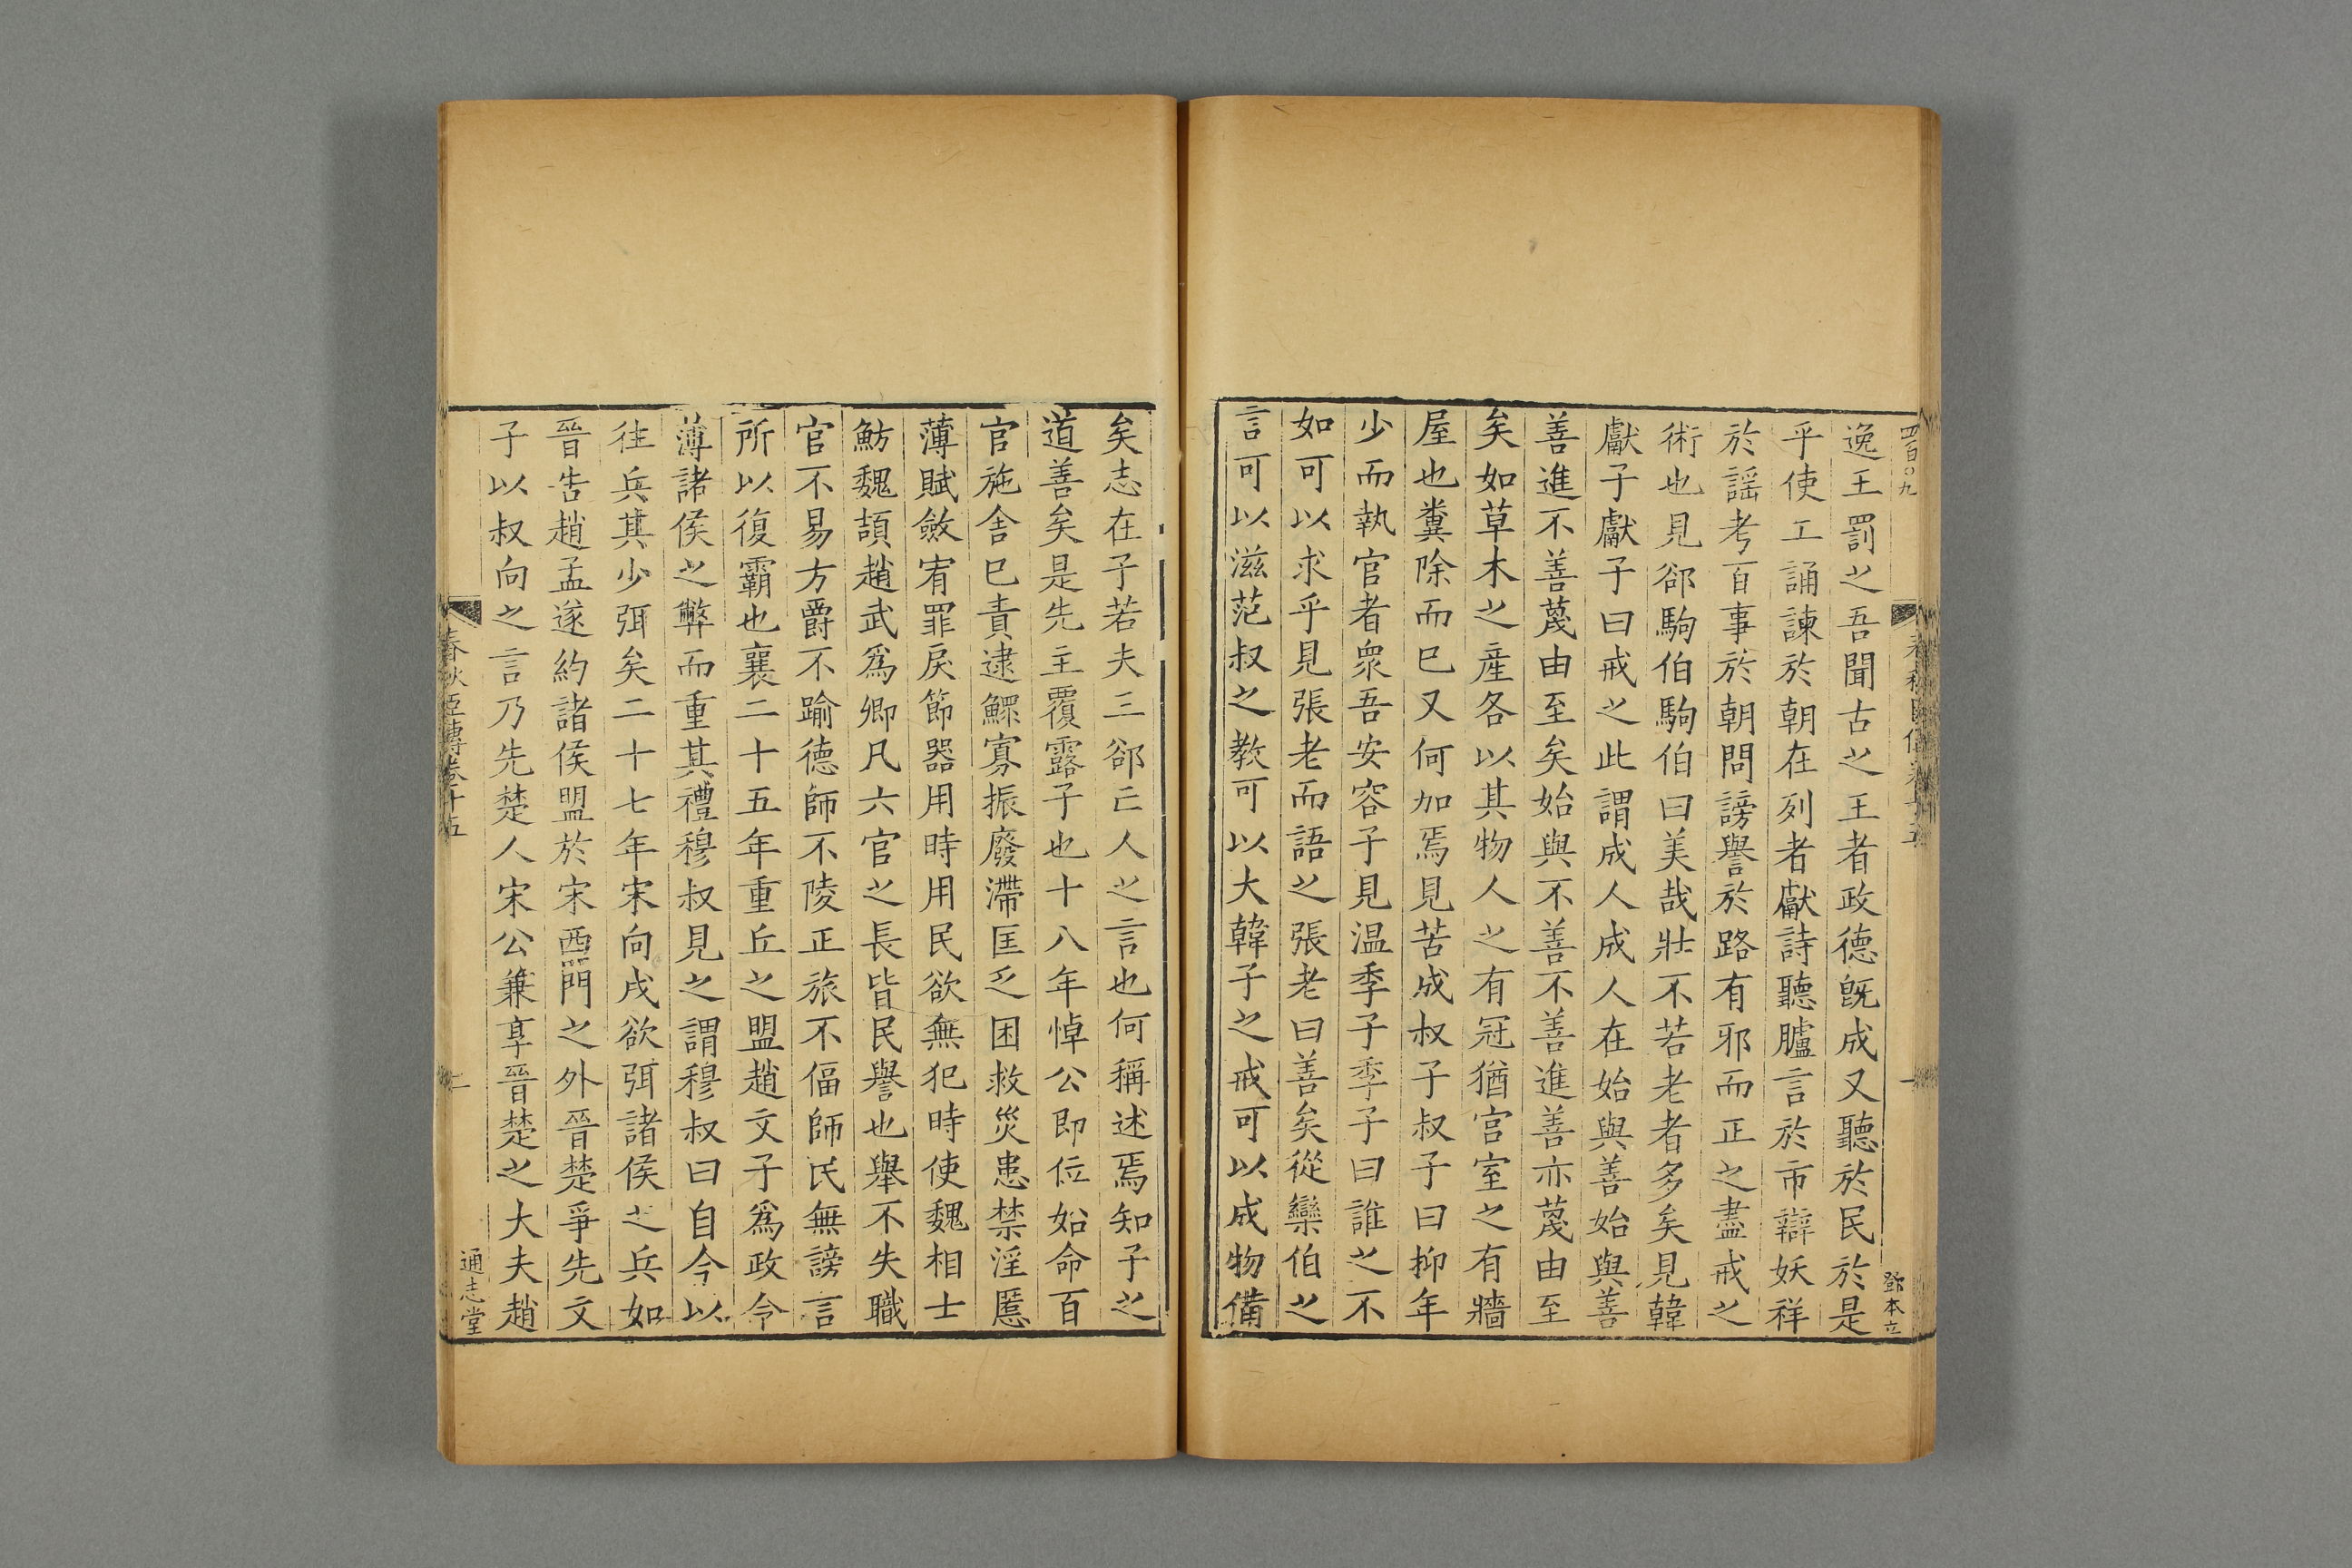 四百〇九
鄧本立
逸王罰之吾聞古之王者政德旣成又聽於民於是
乎使工誦諫於朝在列者獻詩聽臚言於市辯妖祥
於謡考百事於朝問謗譽於路有邪而正之盡戒之
術也見郤駒伯駒伯曰美哉壯不若老者多矣見韓
獻子獻子曰戒之此謂成人成人在始與善始與善
善進不善蔑由至矣始與不善不善進善亦蔑由至
矣如草木之産各以其物人之有冠猶宫室之有牆
屋也糞除而巳又何加焉見苦成叔子叔子曰抑年
少而執官者衆吾安容子見温季子季子曰誰之不
如可以求乎見張老而語之張老曰善矣從欒伯之
言可以滋范叔之教可以大韓子之戒可以成物備
矣志在子若夫三郤亡人之言也何稱述焉知子之
道善矣是先主覆露子也十八年悼公即位始命百
官施舍巳責逮鰥寡振廢滯匡乏困救災患禁淫慝
薄賦斂宥罪戾節器用時用民欲無犯時使魏相士
魴魏頡趙武爲卿凡六官之長皆民譽也舉不失職
官不易方爵不踰德師不陵正旅不偪師民無謗言
所以復霸也襄二十五年重丘之盟趙文子爲政令
薄諸侯之幣而重其禮穆叔見之謂穆叔曰自今以
往兵其少弭矣二十七年宋向戌欲弭諸侯之兵如
晉告趙孟遂約諸侯盟於宋西門之外晉楚爭先文
子以叔向之言乃先楚人宋公兼享晉楚之大夫趙
春秋臣傳卷十五
二
通志堂